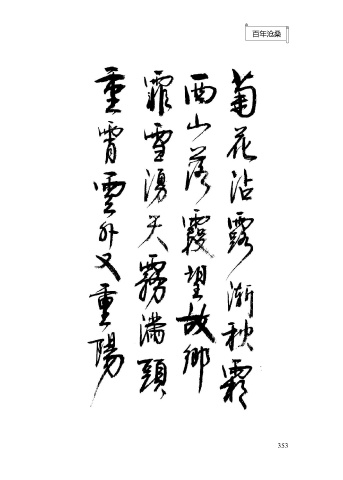 百年沧桑
菊花沾露漸秋霜
西山落霞望故鄉
霏雪漫天霧滿頭
重霄雲外又重陽
353